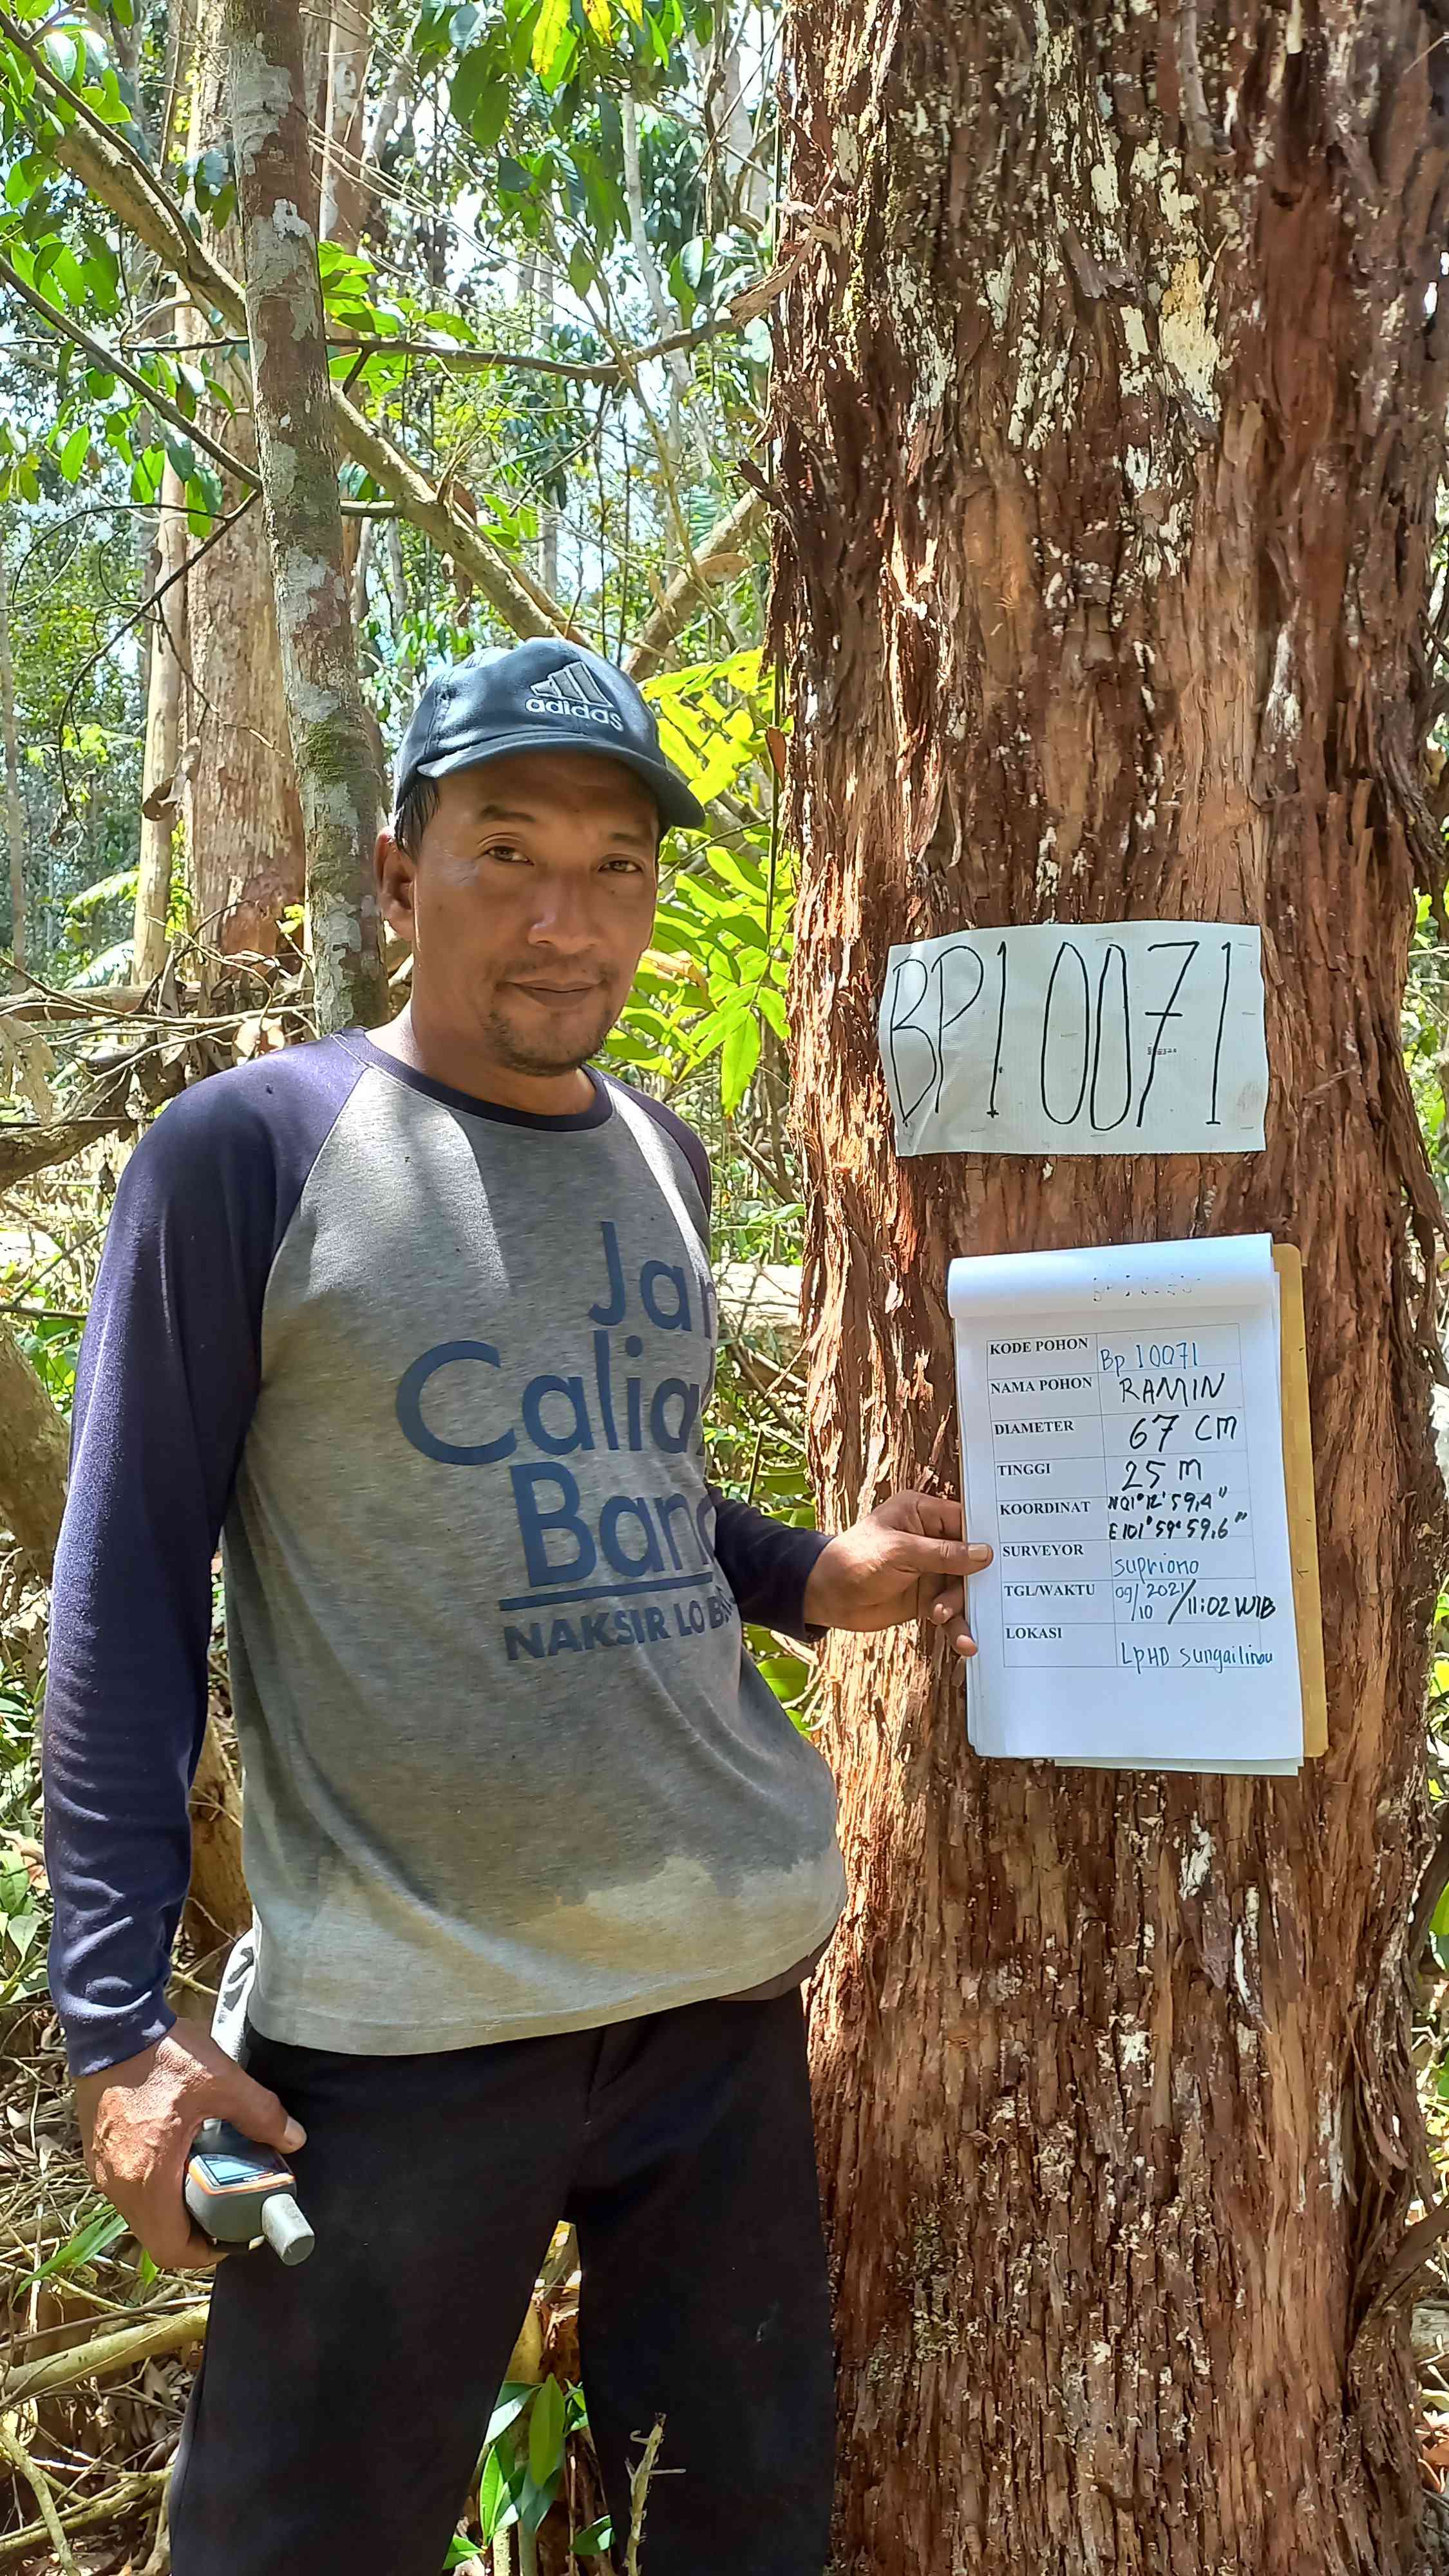 adidas
BP10071
Jan
Calia
Band
NAKSIR LO B
KODE POHON Bp 10071
NAMA POHON RAMIN
DIAMETER 67 CM
TINGGI 25 M
KOORDINAT N01°12'59,4"
E101°59'59,6"
SURVEYOR Supriono
TGL/WAKTU 09/10 2021/11:02 WIB
LOKASI LpHD Sungailinau